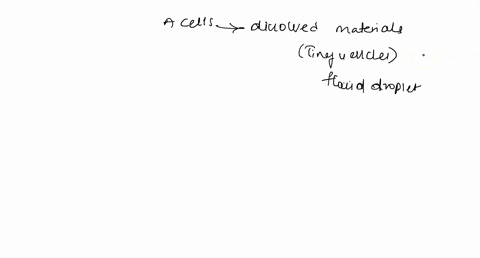 A cells → dissolved materials
(Tiny vesicles)
fluid droplet